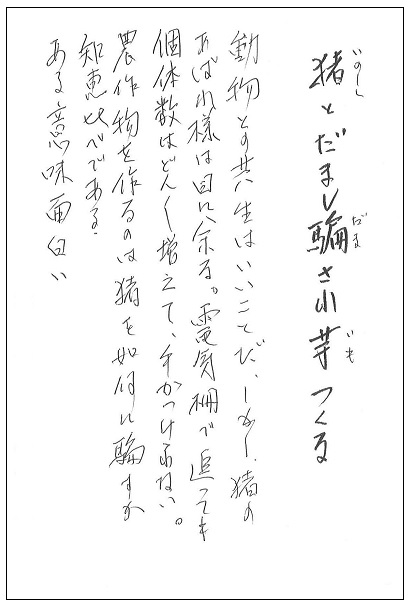 猪とだまし騙され芋つくる
いのしし
だま
いも
動物との共生はいいことだ、しかし、猪の
あばれ様は目に余る。電気柵で追っても
個体数はどんどん増えて、手がつけられない。
農作物を作るのは猪を如何に騙すか
知恵比べである。
ある意味面白い